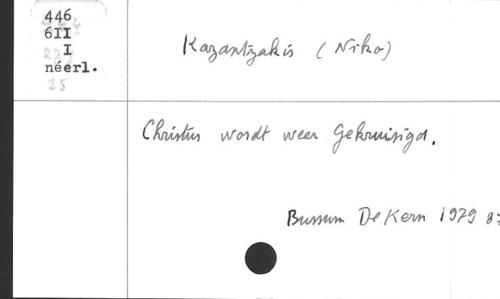 446
6II
I
néerl.
25
Kazantzakis (Niko)
Christus wordt weer gekruisigd.
Bussum De Kern 1979